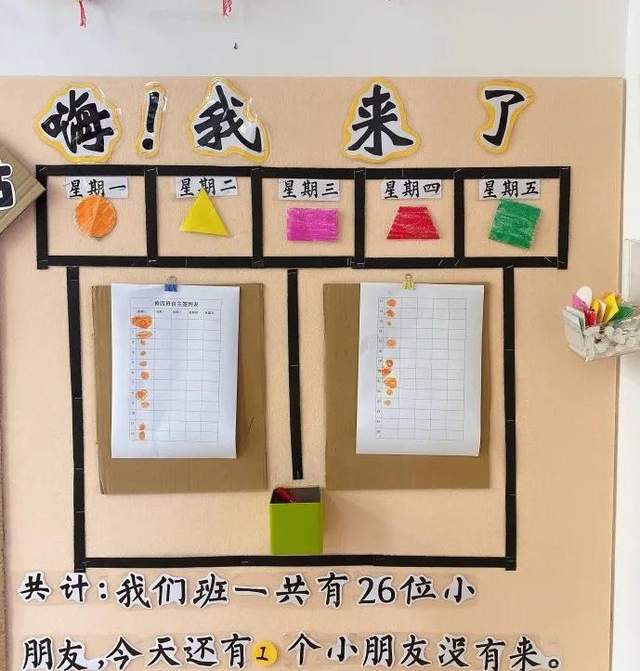 嗨!我来了
星期一 星期二 星期三 星期四 星期五
共计:我们班一共有26位小
朋友,今天还有1个小朋友没有来。